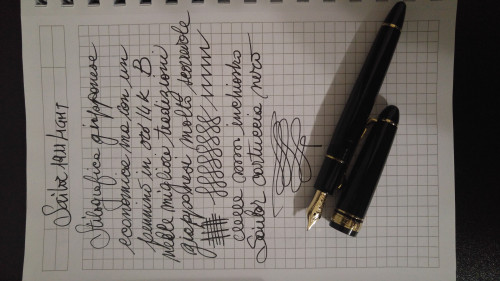 Sailor 1911/LIGHT
Stilografica giapponese
economica ma con un
pennino in oro 14 K B
nelle migliori tradizioni
giapponesi molto scorrevole
inchiostro
Sailor cartuccia nero